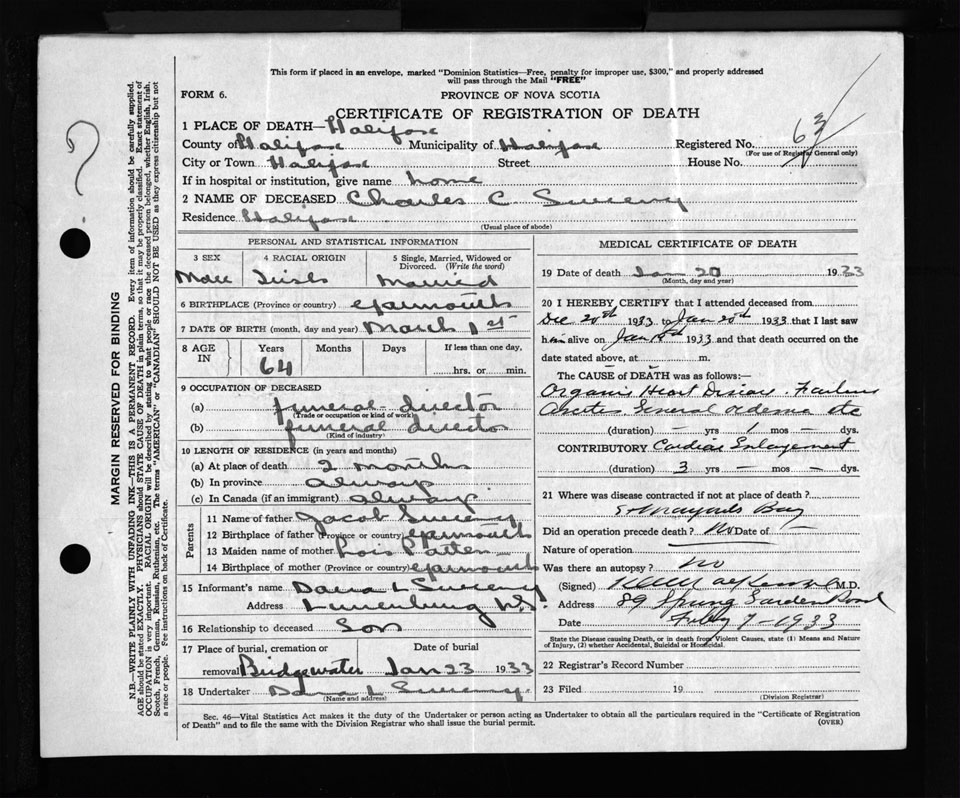 This form if placed in an envelope, marked "Dominion Statistics—Free, penalty for improper use, $300," and properly addressed
will pass through the Mail "FREE"
FORM 6.
PROVINCE OF NOVA SCOTIA
CERTIFICATE OF REGISTRATION OF DEATH
1 PLACE OF DEATH— Halifax
County of Halifax Municipality of Halifax Registered No.
(For use of Registrar General only)
City or Town Halifax Street House No.
If in hospital or institution, give name home
2 NAME OF DECEASED Charles C Sweeny
Residence Halifax
(Usual place of abode)
PERSONAL AND STATISTICAL INFORMATION
3 SEX 4 RACIAL ORIGIN 5 Single, Married, Widowed or Divorced. (Write the word)
Male Irish Married
6 BIRTHPLACE (Province or country) Yarmouth
7 DATE OF BIRTH (month, day and year) March 1st
8 AGE IN Years Months Days If less than one day,
64 hrs. or min.
9 OCCUPATION OF DECEASED
(a) funeral director
(Trade or occupation or kind of work)
(b) funeral director
(Kind of industry)
10 LENGTH OF RESIDENCE (in years and months)
(a) At place of death 2 months
(b) In province always
(c) In Canada (if an immigrant) always
Parents
11 Name of father Jacob Sweeny
12 Birthplace of father (Province or country) Yarmouth
13 Maiden name of mother Lois Patten
14 Birthplace of mother (Province or country) Yarmouth
15 Informant's name Dana L Sweeny
Address Lunenburg N.S.
16 Relationship to deceased Son
17 Place of burial, cremation or removal Date of burial
Bridgewater Jan 23 1933
18 Undertaker Dana L Sweeny
(Name and address)
MEDICAL CERTIFICATE OF DEATH
19 Date of death Jan 20 1933
(Month, day and year)
20 I HEREBY CERTIFY that I attended deceased from
Dec 20th 1933 to Jan 20th 1933 that I last saw
him alive on Jan 1933 and that death occurred on the
date stated above, at m.
The CAUSE OF DEATH was as follows:—
Organic Heart Disease Failure
Ascites General oedema etc
(duration) — yrs 1 mos — dys.
CONTRIBUTORY Cardiac Enlargement
(duration) 3 yrs — mos — dys.
21 Where was disease contracted if not at place of death?
St Margarets Bay
Did an operation precede death? No Date of —
Nature of operation
Was there an autopsy? No
(Signed) M.D.
Address 89 Spring Garden Road
Date Feby 7 - 1933
State the Disease causing Death, or in death from Violent Causes, state (1) Means and Nature
of Injury, (2) whether Accidental, Suicidal or Homicidal.
22 Registrar's Record Number
23 Filed 19
(Division Registrar)
Sec. 46—Vital Statistics Act makes it the duty of the Undertaker or person acting as Undertaker to obtain all the particulars required in the "Certificate of Registration
of Death" and to file the same with the Division Registrar who shall issue the burial permit. (OVER)
MARGIN RESERVED FOR BINDING
N.B.—WRITE PLAINLY WITH UNFADING INK—THIS IS A PERMANENT RECORD. Every item of information should be carefully supplied.
AGE should be stated EXACTLY. PHYSICIANS should STATE CAUSE OF DEATH in plain terms, so that it may be properly classified. Exact statement of
OCCUPATION is very important. RACIAL ORIGIN will be described by stating to what people or race the deceased person belonged, whether English, Irish,
Scotch, French, German, Russian, Ruthenian, etc. The terms "AMERICAN" or "CANADIAN" SHOULD NOT BE USED as they express citizenship but not
a race or people. Fee instructions on back of Certificate.